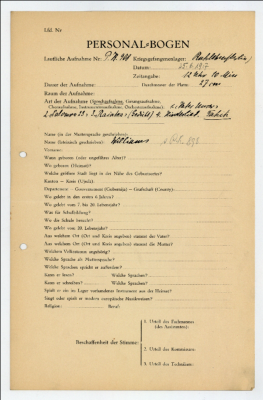 Lfd. Nr
PERSONAL-BOGEN
Lautliche Aufnahme Nr.: P.K. Kriegsgefangenenlager:
Datum: 25.6.1917
Zeitangabe: 12 Uhr 10 Min
Dauer der Aufnahme: Durchmesser der Platte: 27 cm
Raum der Aufnahme:
Art der Aufnahme (Sprechaufnahme, Gesangsaufnahme,
Choraufnahme, Instrumentenaufnahme, Orchesteraufnahme):
Name (in der Muttersprache geschrieben):
Name (lateinisch geschrieben): Williams
Vorname:
Wann geboren (oder ungefähres Alter)?
Wo geboren (Heimat)?
Welche größere Stadt liegt in der Nähe des Geburtsortes?
Kanton — Kreis (Ujezd):
Departement — Gouvernement (Gubernija) — Grafschaft (County):
Wo gelebt in den ersten 6 Jahren?
Wo gelebt vom 7. bis 20. Lebensjahr?
Was für Schulbildung?
Wo die Schule besucht?
Wo gelebt vom 20. Lebensjahr?
Aus welchem Ort (Ort und Kreis angeben) stammt der Vater?
Aus welchem Ort (Ort und Kreis angeben) stammt die Mutter?
Welchem Volksstamm angehörig?
Welche Sprache als Muttersprache?
Welche Sprachen spricht er außerdem?
Kann er lesen? Welche Sprachen?
Kann er schreiben? Welche Sprachen?
Spielt er ein im Lager vorhandenes Instrument aus der Heimat?
Singt oder spielt er modern europäische Musikweisen?
Religion: Beruf:
Beschaffenheit der Stimme:
1. Urteil des Fachmannes
(des Assistenten):
2. Urteil des Kommissars:
3. Urteil des Technikers: